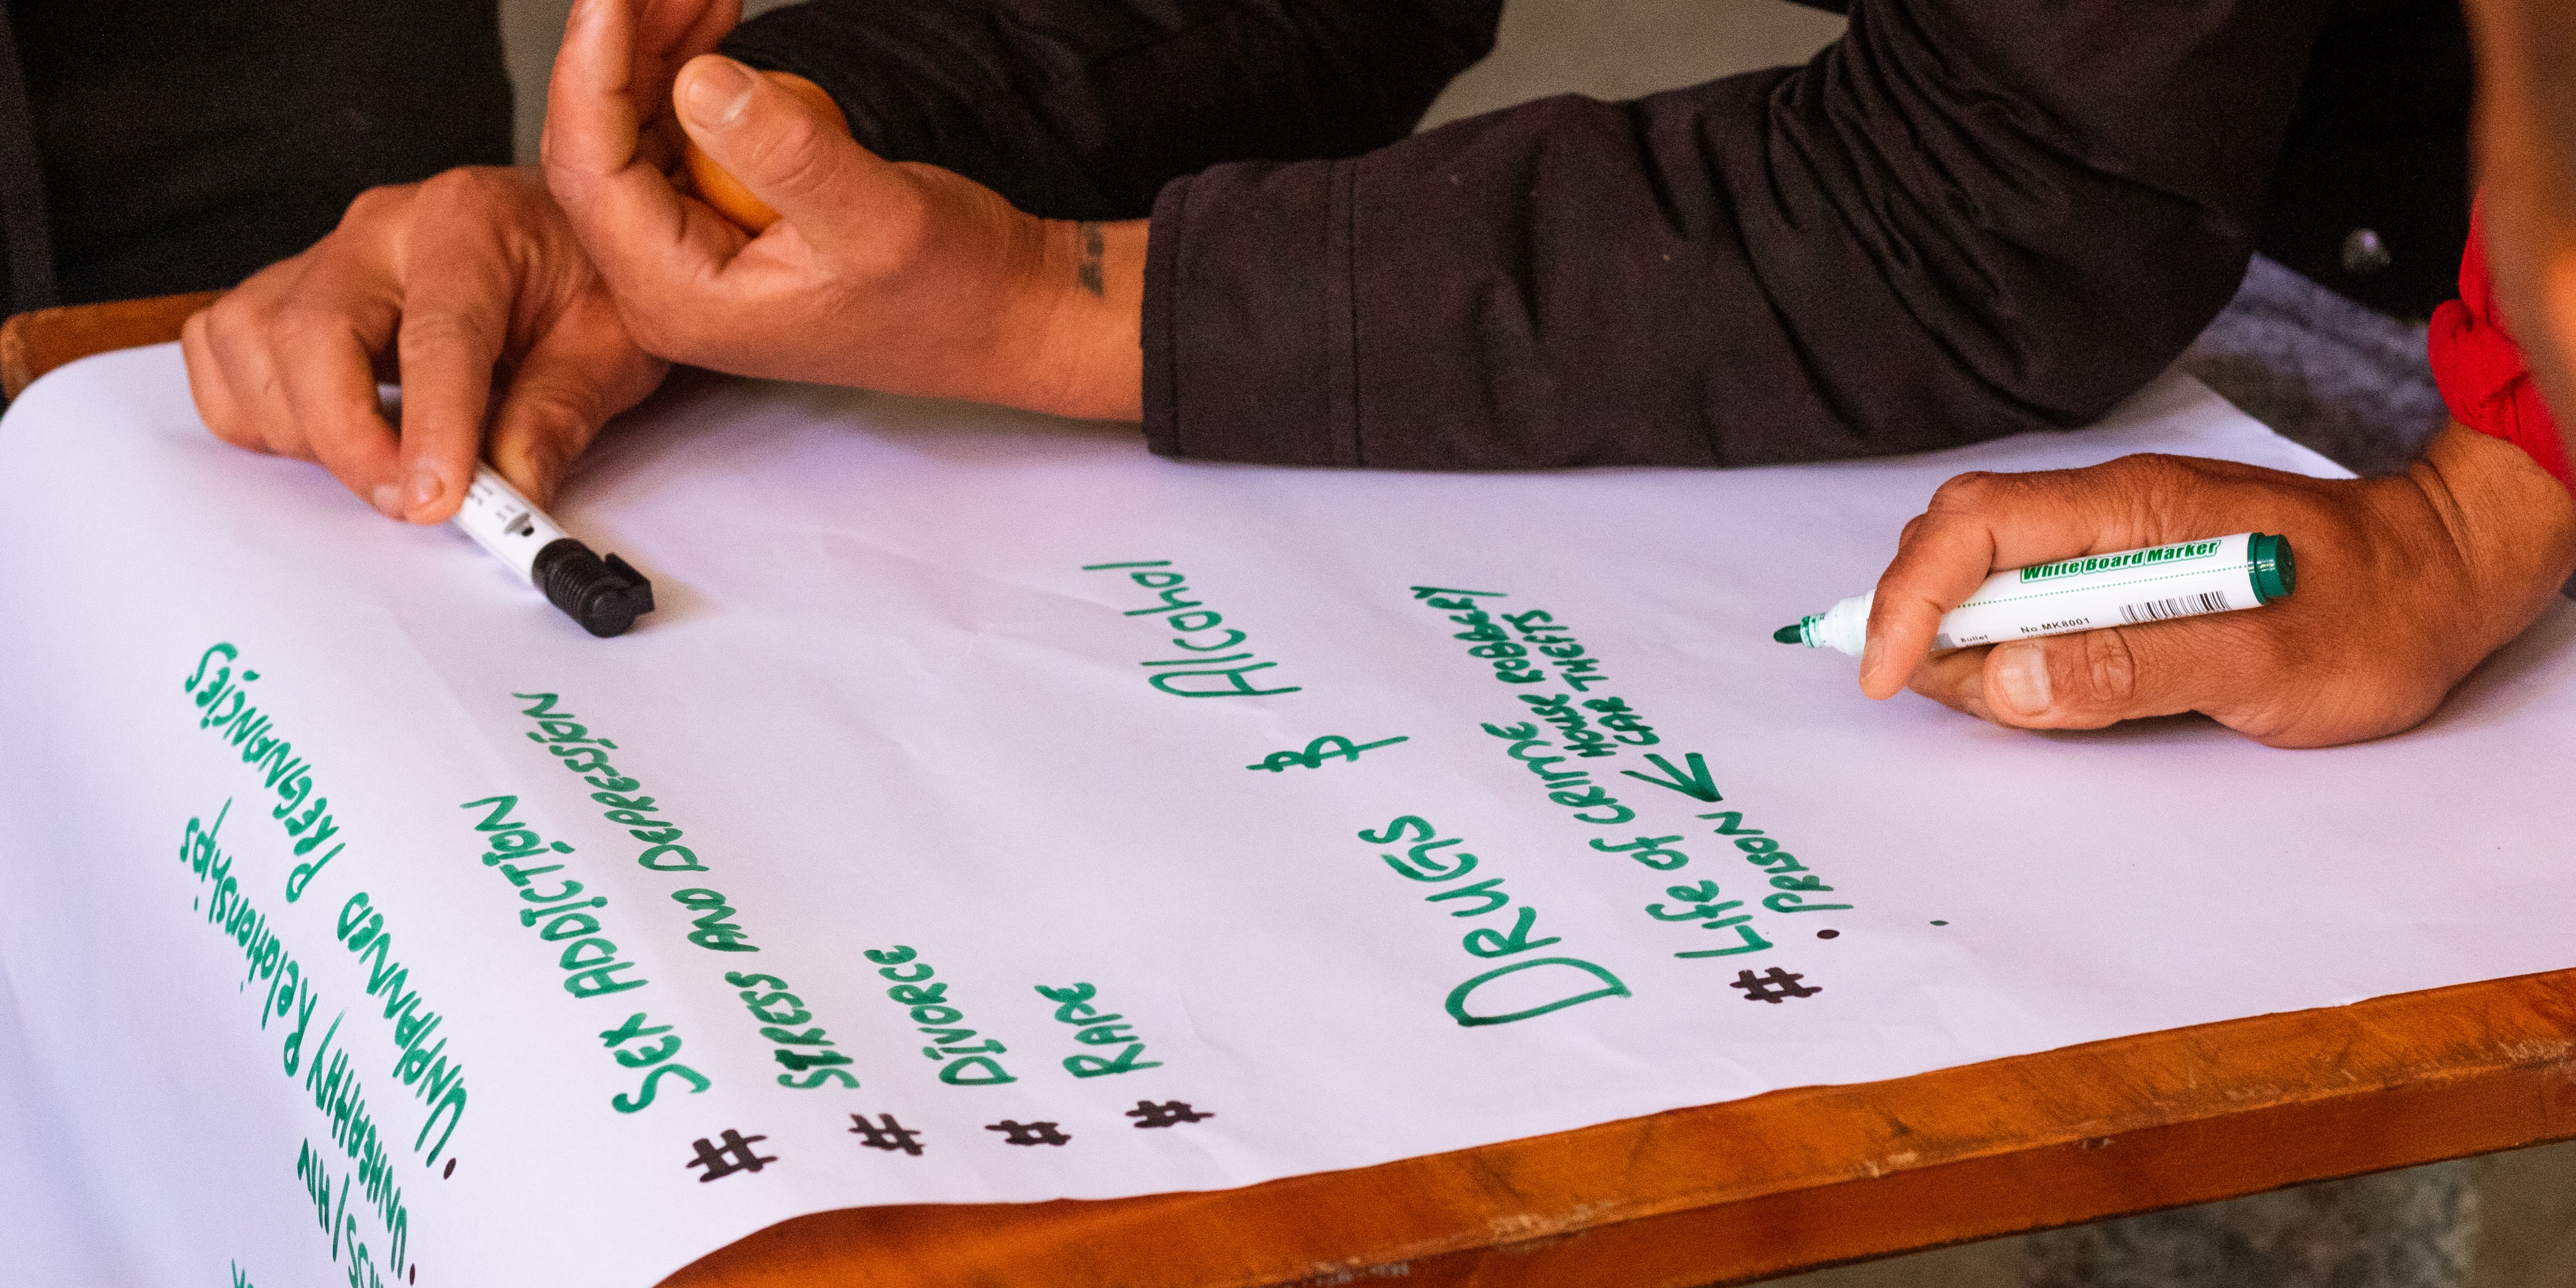 • UNHEALTHY Relationships
• UNPlANNED PREGNANCiES
# SEX ADDiCTiON
# STRESS AND DEPRESSiON
# DivORCE
# RAPE
DRUGS & Alcohol
# Life of CRIME
HOUSE ROBBERY
• PRISON
CAR THEFTS
White Board Marker
Bullet
No.MK8001